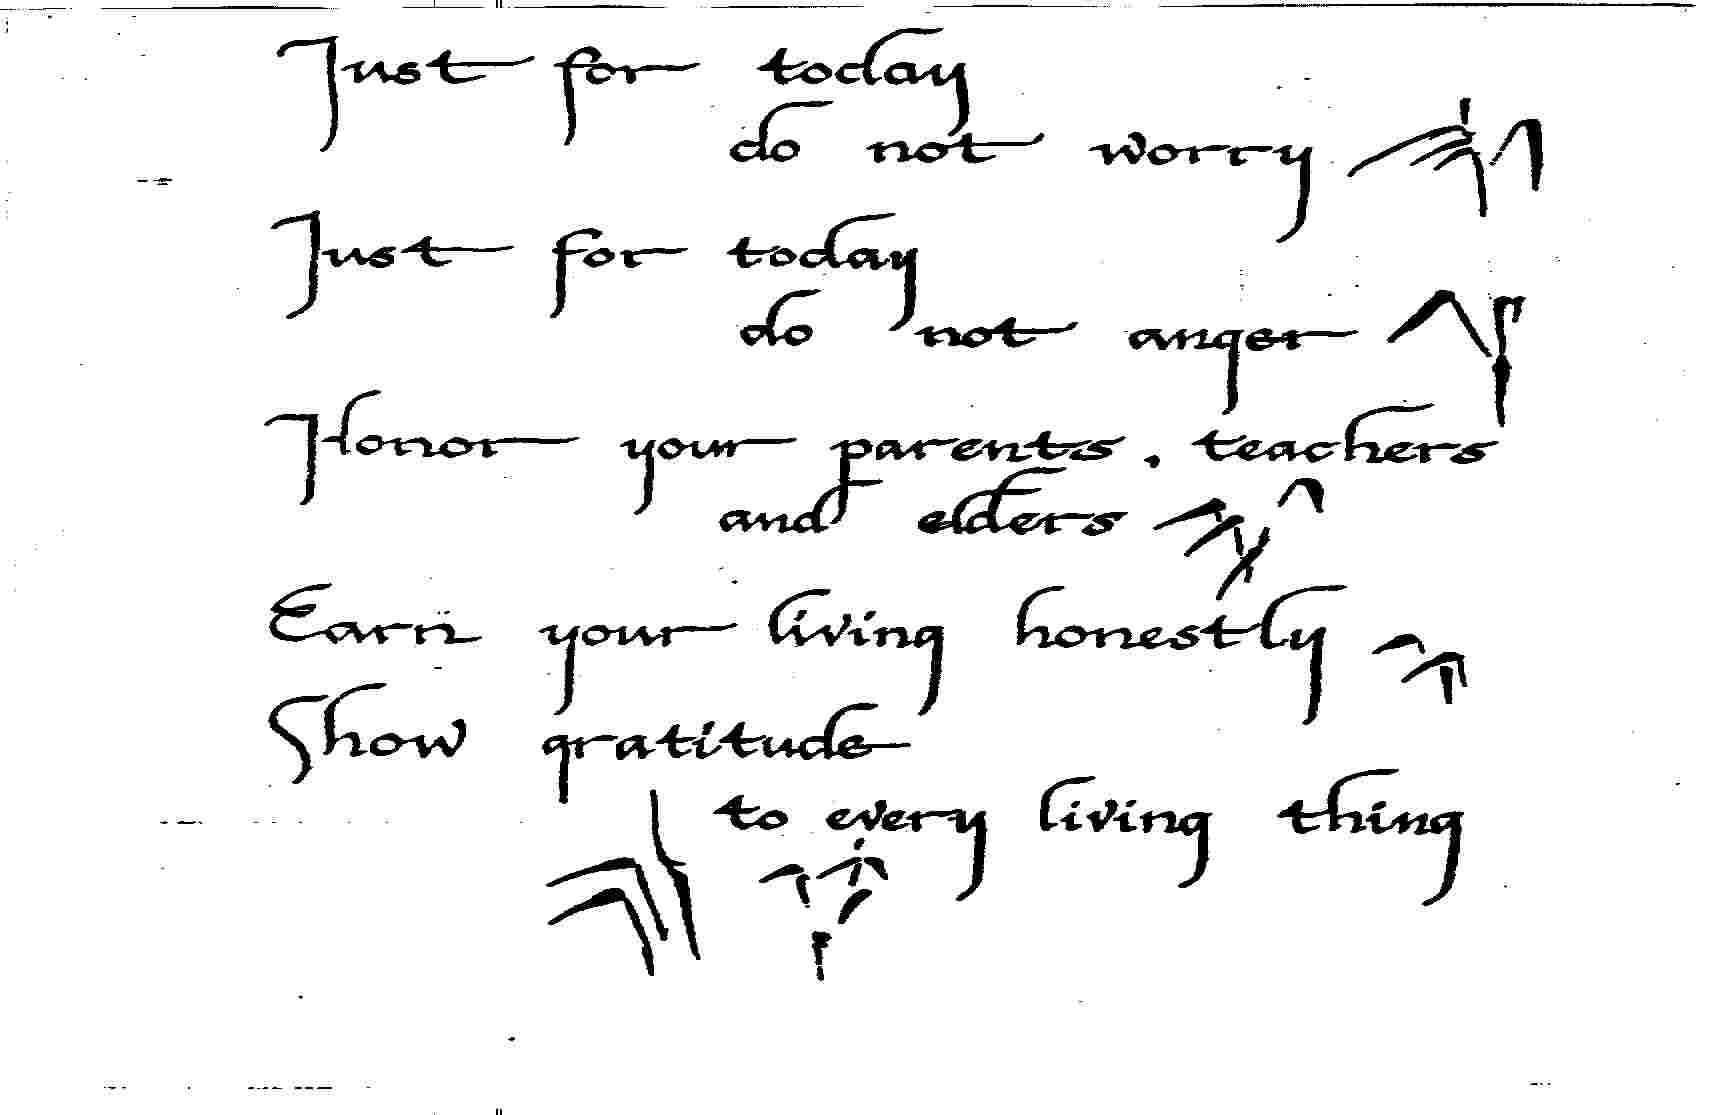 Just for today
do not worry
Just for today
do not anger
Honor your parents, teachers
and elders
Earn your living honestly
Show gratitude
to every living thing